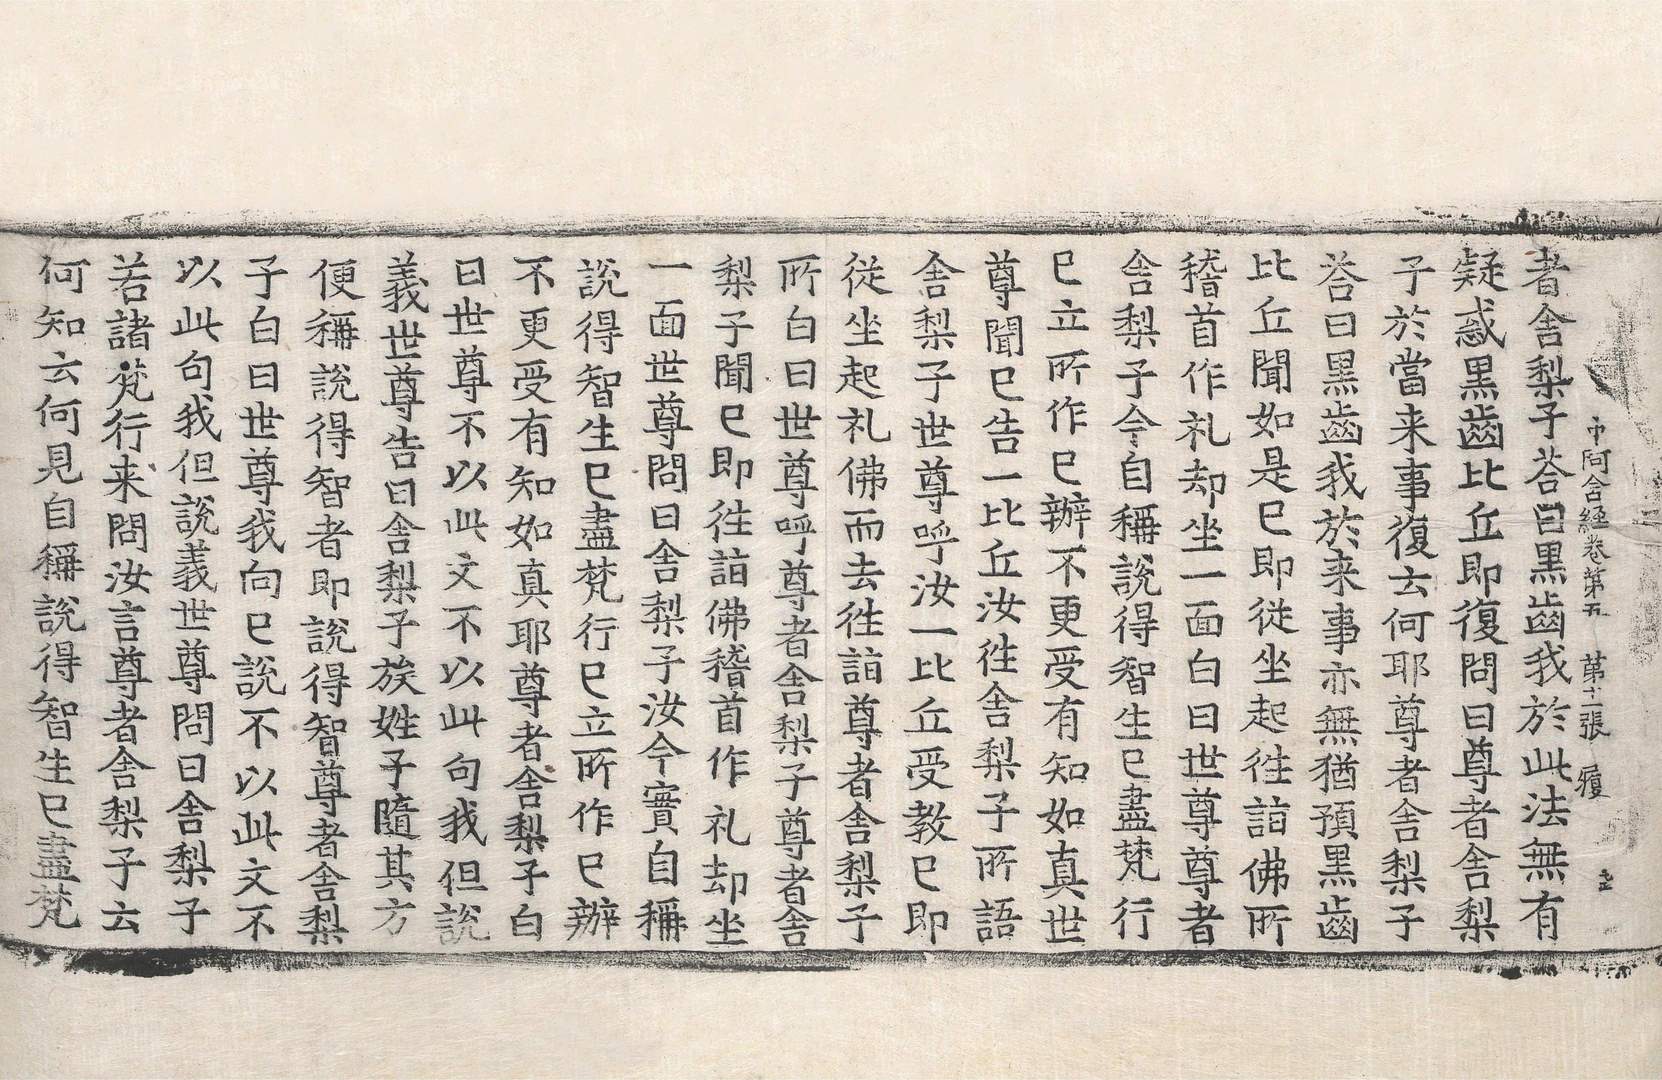 中阿含經卷第五　第十二張　履
者舍梨子荅曰黒齒我於此法無有
疑惑黒齒比丘即復問曰尊者舍梨
子於當来事復云何耶尊者舍梨子
荅曰黒齒我於来事亦無猶預黒齒
比丘聞如是已即従坐起徃詣佛所
稽首作礼却坐一面白曰世尊尊者
舍梨子今自稱說得智生已盡梵行
已立所作已辦不更受有知如真世
尊聞已告一比丘汝徃舍梨子所語
舍梨子世尊呼汝一比丘受教已即
従坐起礼佛而去徃詣尊者舍梨子
所白曰世尊呼尊者舍梨子尊者舍
梨子聞已即徃詣佛稽首作礼却坐
一面世尊問曰舍梨子汝今實自稱
說得智生已盡梵行已立所作已辦
不更受有知如真耶尊者舍梨子白
曰世尊不以此文不以此句我但說
義世尊告曰舍梨子族姓子隨其方
便稱說得智者即說得智尊者舍梨
子白曰世尊我向已說不以此文不
以此句我但說義世尊問曰舍梨子
若諸梵行来問汝言尊者舍梨子云
何知云何見自稱說得智生已盡梵